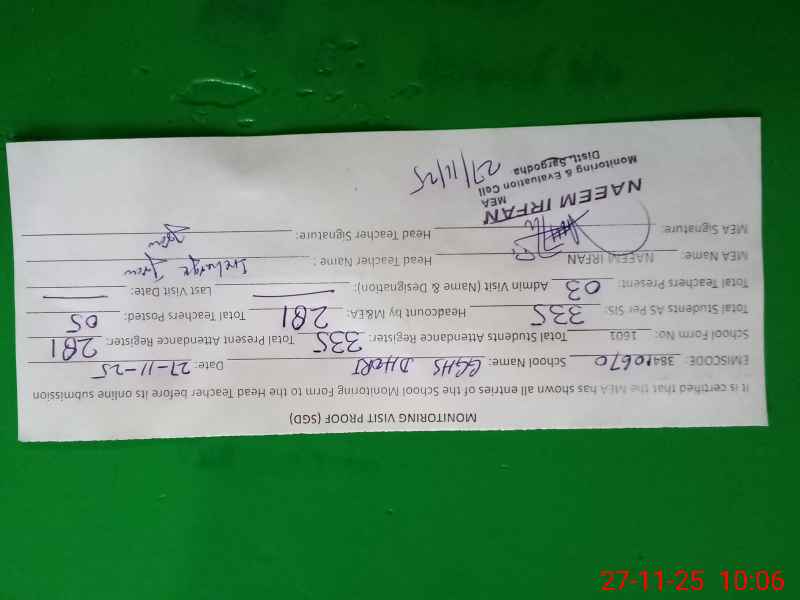 MONITORING VISIT PROOF (SGD)
It is certified that the MEA has shown all entries of the School Monitoring Form to the Head Teacher before its online submission
EMISCODE: 38410670 School Name: GGHS DHORI Date: 27-11-25
School Form No: 1601 Total Students Attendance Register: 335 Total Present Attendance Register: 281
Total Students AS Per SIS: 335 Headcount by M&EA: 281 Total Teachers Posted: 05
Total Teachers Present: 03 Admin Visit (Name & Designation): Last Visit Date:
MEA Name: NAEEM IRFAN Head Teacher Name: Incharge
MEA Signature: Head Teacher Signature:
NAEEM IRFAN
MEA
Monitoring & Evaluation Cell
Distt. Sargodha
27/11/25
27-11-25 10:06